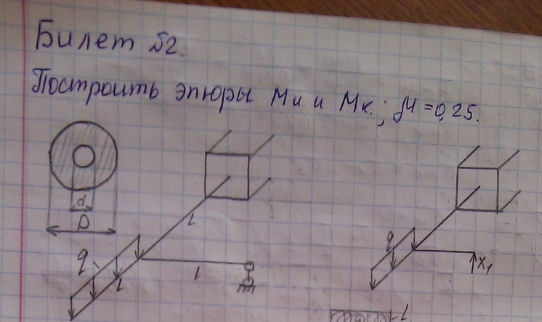 Билет 52.
Построить эпюры Ми и Мк; μ=0,25.
d
D
q
l
l
l
q
x₁